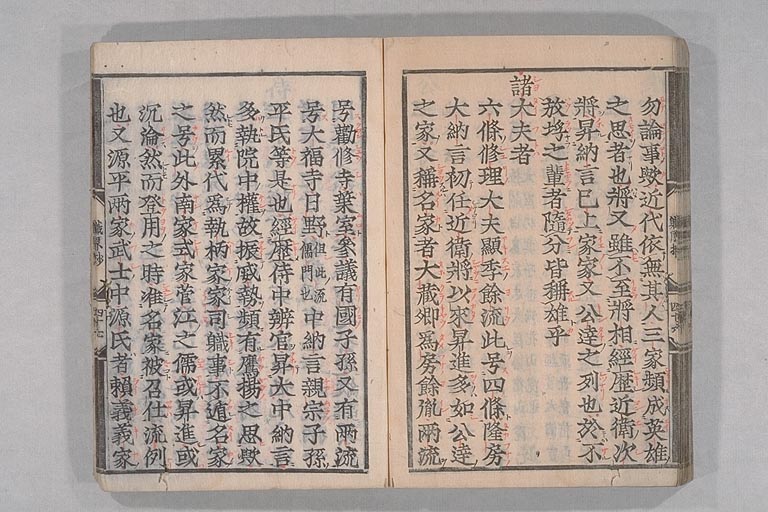 勿論事歟近代依無其人三家頻成英雄
之思者也將又雖不至將相經歷近衛次
將昇納言已上家家又公達之列也於不
放埓之輩者隨分皆稱雄乎
諸大夫者
六條修理大夫顯季餘流此号四條隆房
大納言初任近衛將以來昇進多如公達
之家又稱名家者大藏卿爲房餘胤兩流
号勸修寺葉室參議有國子孫又有兩流
号大福寺日野但此流儒門也中納言親宗子孫
平氏等是也經歷侍中辨官昇大中納言
多執院中權故振威勢頻有鷹揚之思歟
然而累代爲執柄家家司職事不遁名家
之号此外南家式家菅江之儒或昇進或
沉淪然而登用之時准名家被召仕流例
也又源平兩家武士中源氏者賴義義家